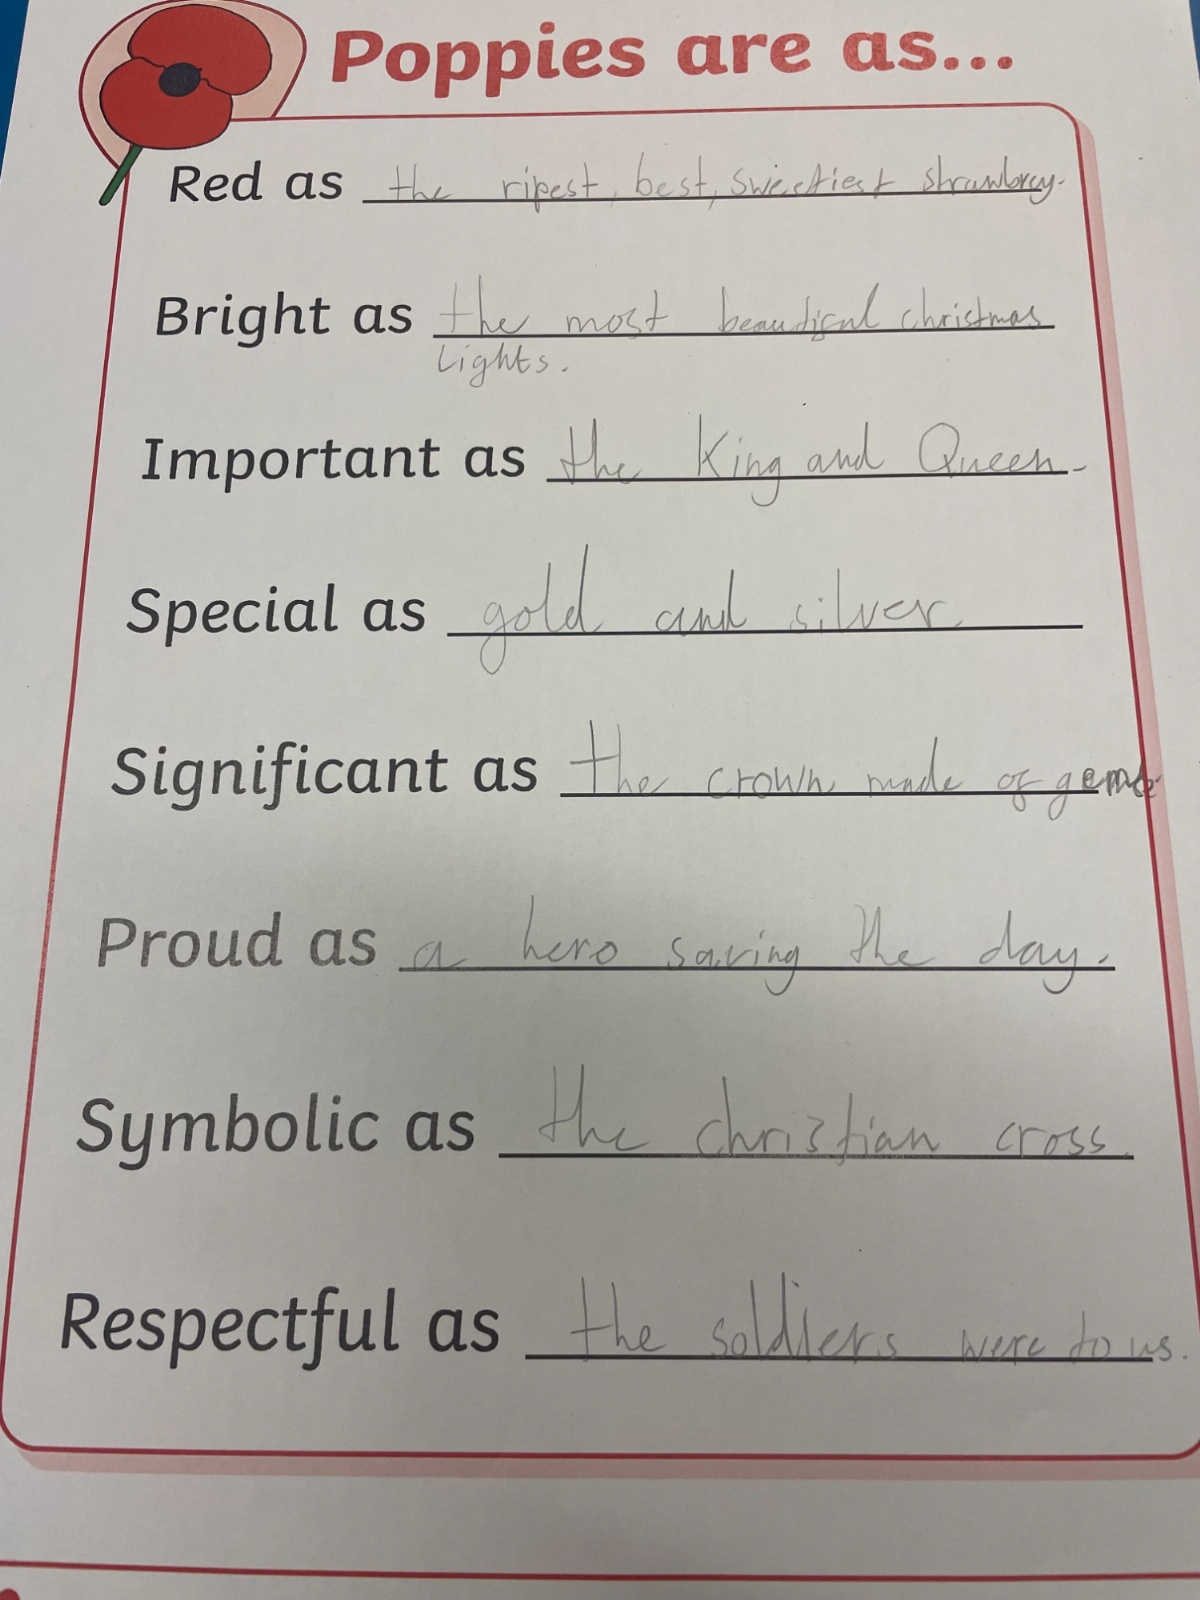 Poppies are as...
Red as the ripest, best, sweetiest strawbrey.
Bright as the most beautiful christmas
Lights.
Important as the King and Queen.
Special as gold and silver.
Significant as the crown made of
Proud as a hero saving the day.
Symbolic as the christian cross.
Respectful as the soldiers were to us.